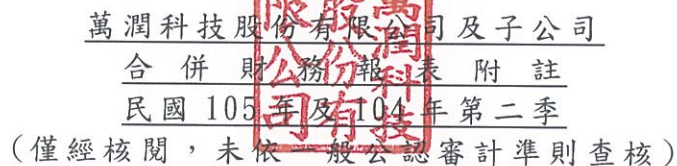 萬潤科技股份有限公司及子公司
合併財務報表附註
民國 105 年及 104 年第二季
(僅經核閱，未依一般公認審計準則查核)
萬潤科技股份有限公司